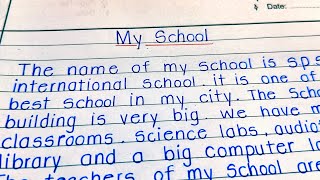 Date:
My School
The name of my school is S.P.S
international school. it is one of
best school in my city. The Scho
building is very big. we have m
classrooms. Science labs, audio
library and a big computer la
The teachers of my School are